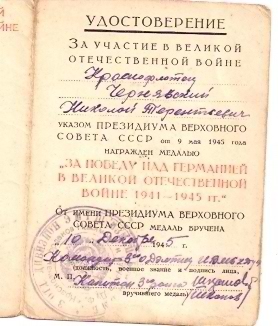 УДОСТОВЕРЕНИЕ
ЗА УЧАСТИЕ В ВЕЛИКОЙ
ОТЕЧЕСТВЕННОЙ ВОЙНЕ
Краснофлотец
Чернявский
Николай Терентьевич
УКАЗОМ ПРЕЗИДИУМА ВЕРХОВНОГО
СОВЕТА СССР от 9 мая 1945 года
НАГРАЖДЕН МЕДАЛЬЮ
"ЗА ПОБЕДУ НАД ГЕРМАНИЕЙ
В ВЕЛИКОЙ ОТЕЧЕСТВЕННОЙ
ВОЙНЕ 1941—1945 гг."
От имени ПРЕЗИДИУМА ВЕРХОВНОГО
СОВЕТА СССР МЕДАЛЬ ВРУЧЕНА
"10" Декабря 1945 г.
Командир
(должность, военное звание и подпись лица,
М. П. Капитан 3 ранга
вручившего медаль)